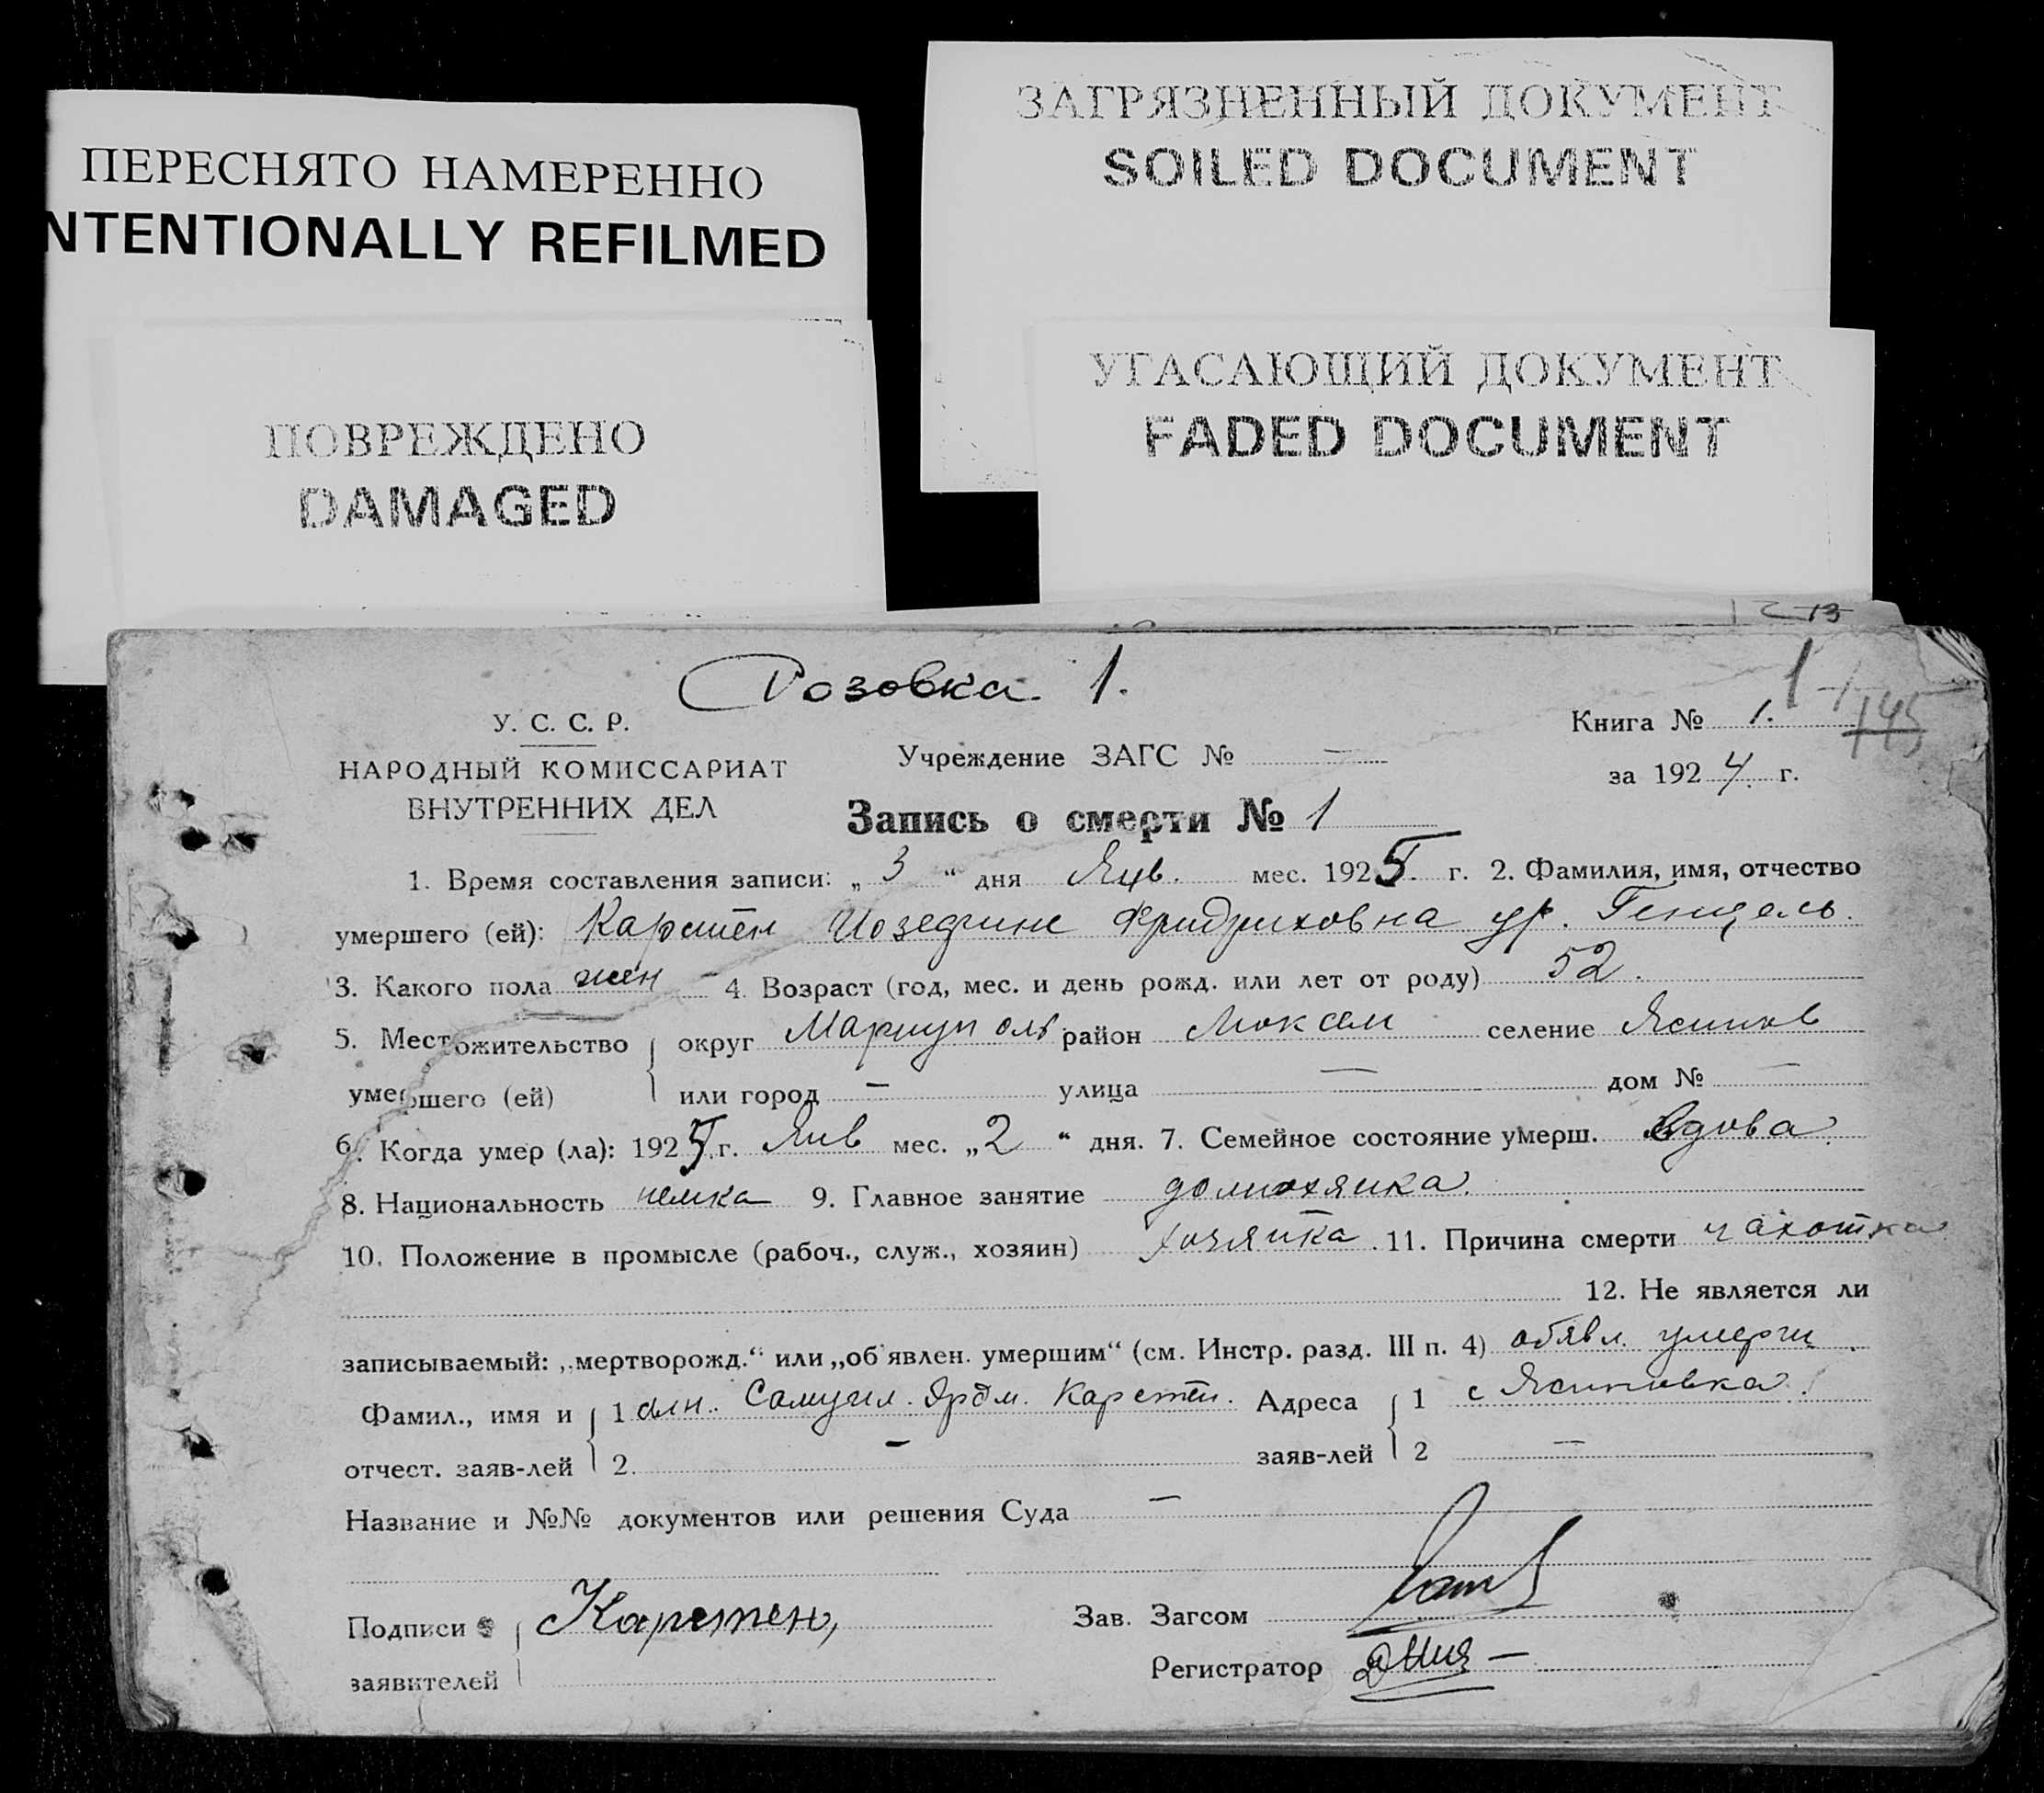 ЗАГРЯЗНЕННЫЙ ДОКУМЕНТ
SOILED DOCUMENT
ПЕРЕСНЯТО НАМЕРЕННО
NTENTIONALLY REFILMED
УГАСАЮЩИЙ ДОКУМЕНТ
FADED DOCUMENT
ПОВРЕЖДЕНО
DAMAGED
Розовка 1.
1
145
У. С. С. Р.
НАРОДНЫЙ КОМИССАРИАТ
ВНУТРЕННИХ ДЕЛ
Учреждение ЗАГС № —
Книга № 1.
за 1924 г.
Запись о смерти № 1
1. Время составления записи: „3“ дня Янв. мес. 1925 г. 2. Фамилия, имя, отчество
умершего (ей): Карстен Иозефине Фридриховна ур. Генцель.
3. Какого пола жен — 4. Возраст (год, мес. и день рожд. или лет от роду) 52.
5. Местожительство округ Мариуполь район Люксем селение Ясинов
умершего (ей) или город — улица — дом № —
6. Когда умер (ла): 1925 г. Янв мес. „2“ дня. 7. Семейное состояние умерш. вдова.
8. Национальность немка 9. Главное занятие
10. Положение в промысле (рабоч., служ., хозяин) хозяйка. 11. Причина смерти чахотка
12. Не является ли
записываемый: „мертворожд.“ или „об'явлен. умершим“ (см. Инстр. разд. III п. 4) обявл.
Фамил., имя и 1 Самуил. Эрдм. Карстен. Адреса 1 с Ясиновка.
отчест. заяв-лей 2. — заяв-лей 2 —
Название и №№ документов или решения Суда —
Подписи Карстен, Зав. Загсом
заявителей Регистратор